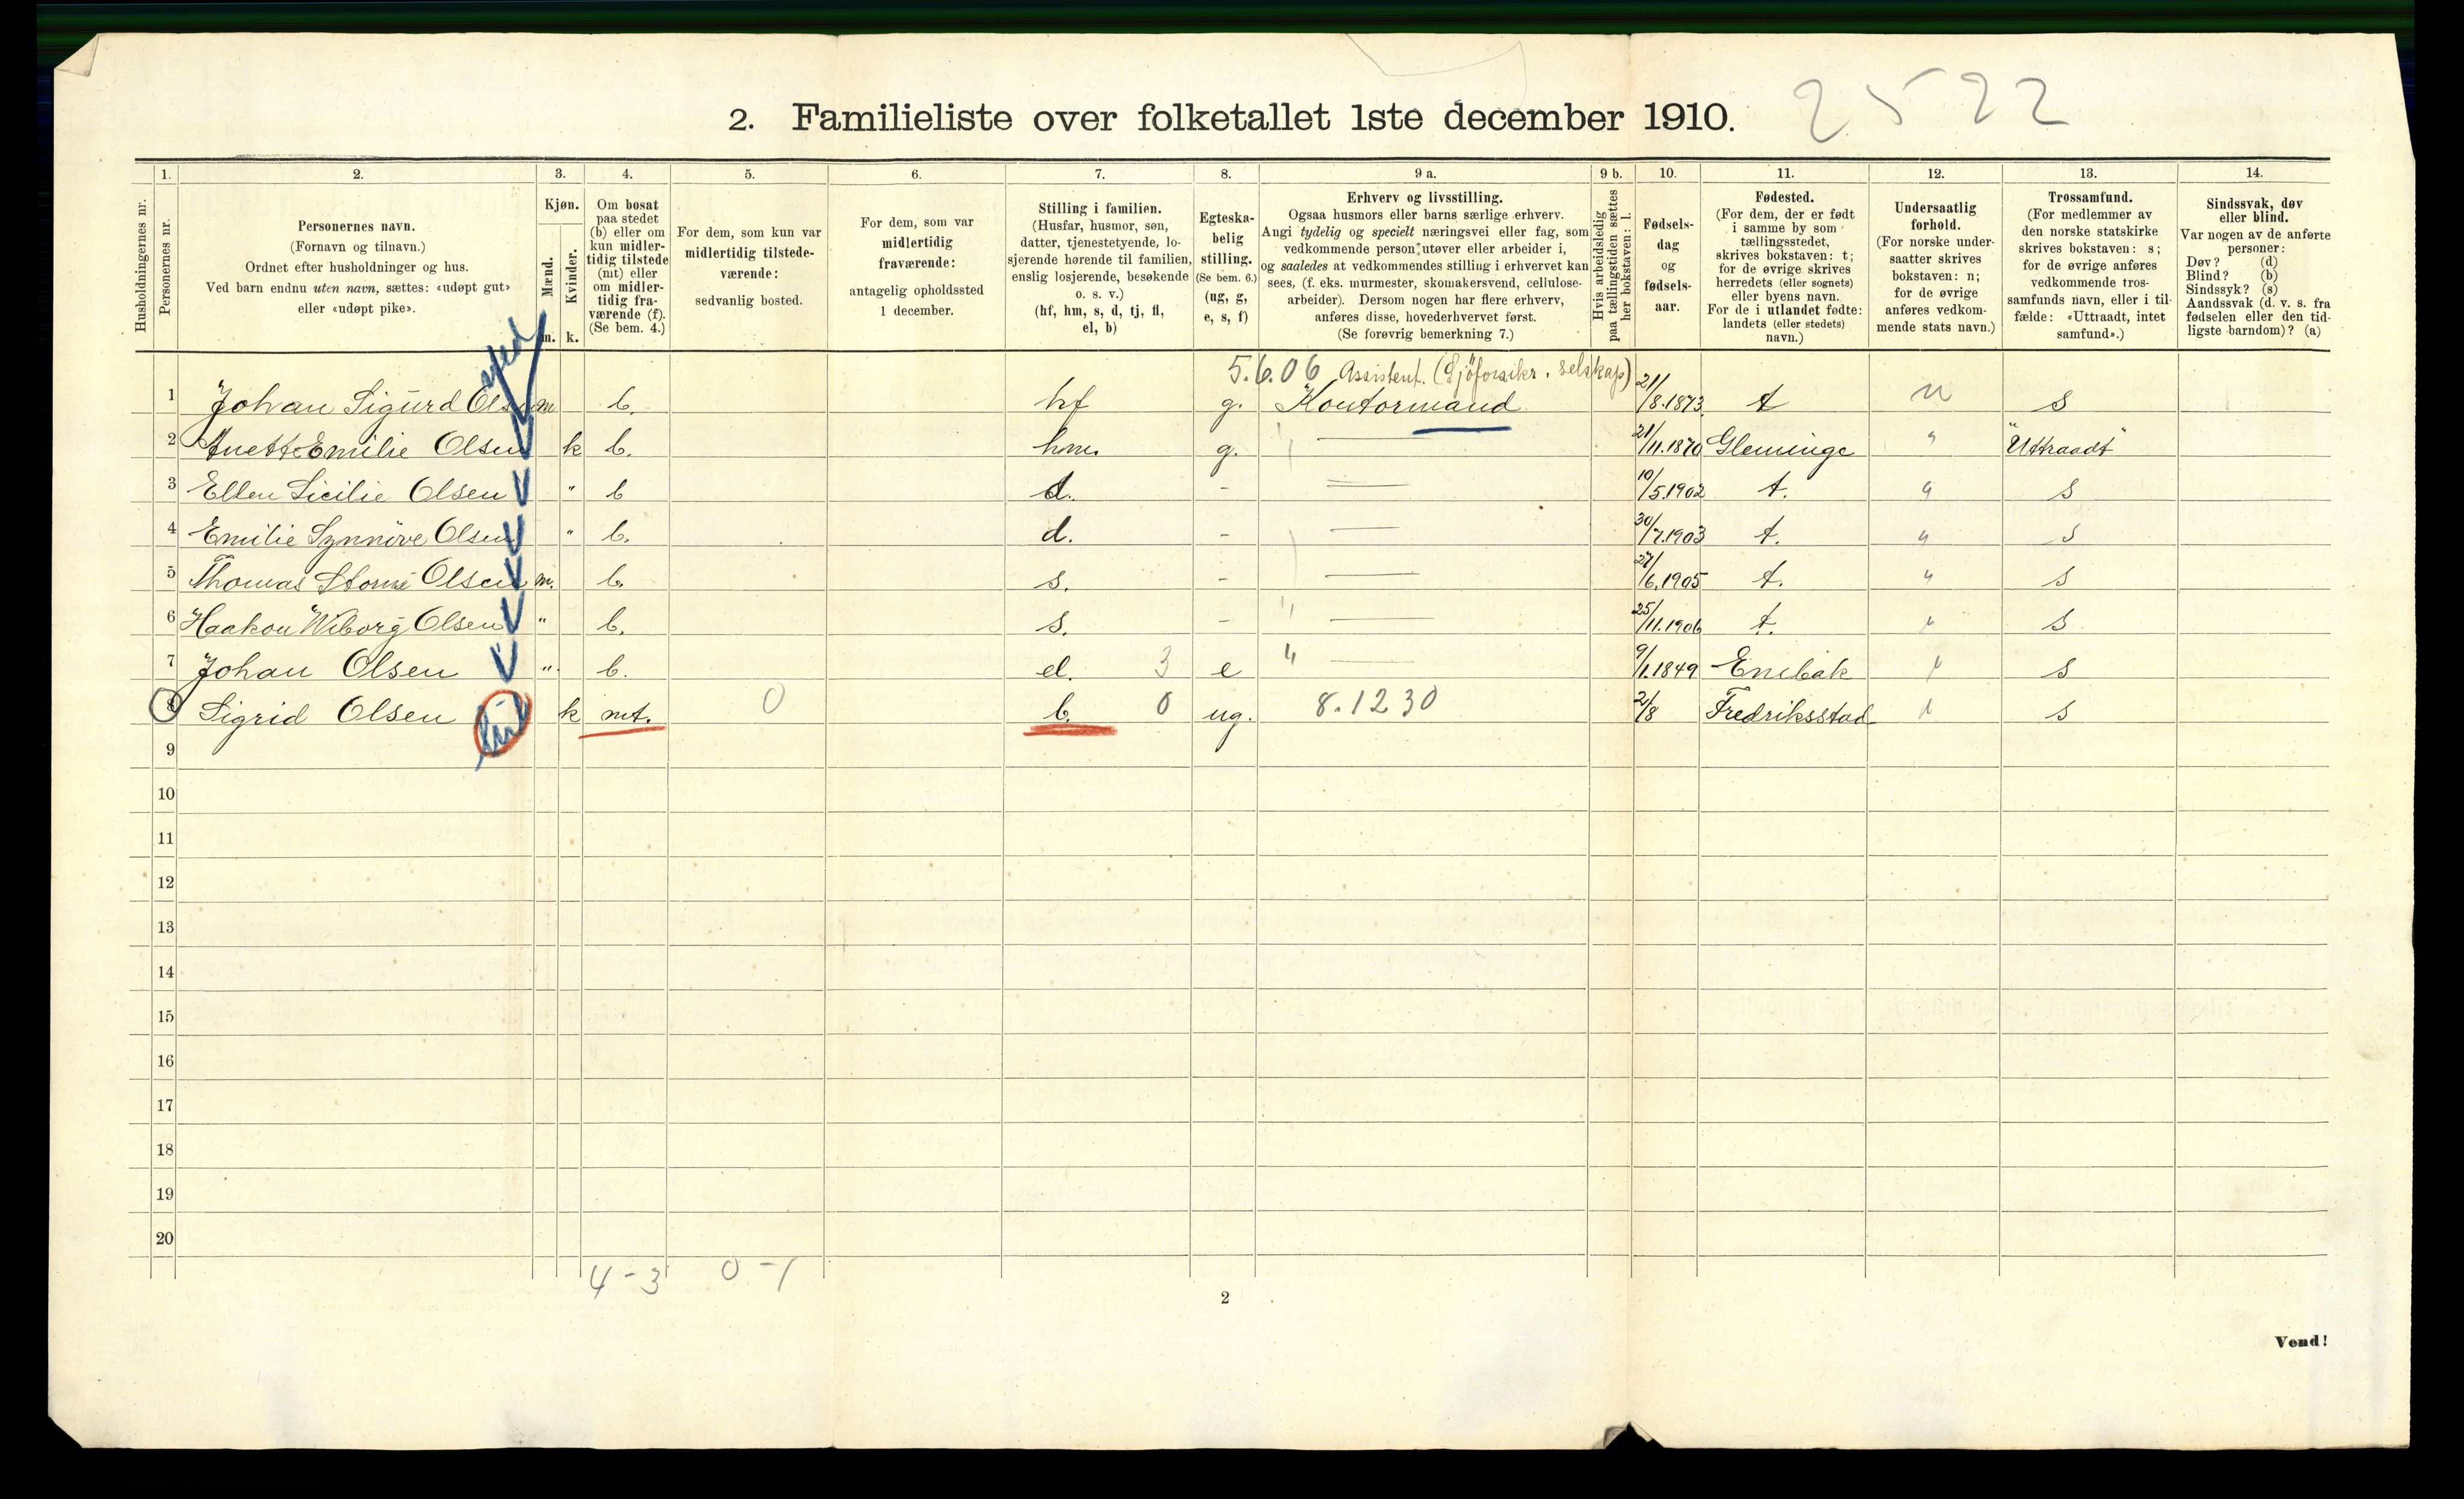 2. Familieliste over folketallet 1ste december 1910.
2522
1. 2. 3. 4. 5. 6. 7. 8. 9 a. 9 b. 10. 11. 12. 13. 14.
Husholdningernes nr.
Personernes nr.
Personernes navn.
(Fornavn og tilnavn.)
Ordnet efter husholdninger og hus.
Ved barn endnu uten navn, sættes: «udøpt gut»
eller «udøpt pike».
Kjøn.
Mænd.
Kvinder.
m. k.
Om bosat
paa stedet
(b) eller om
kun midler-
tidig tilstede
(mt) eller
om midler-
tidig fra-
værende (f).
(Se bem. 4.)
For dem, som kun var
midlertidig tilstede-
værende:
sedvanlig bosted.
For dem, som var
midlertidig
fraværende:
antagelig opholdssted
1 december.
Stilling i familien.
(Husfar, husmor, søn,
datter, tjenestetyende, lo-
sjerende hørende til familien,
enslig losjerende, besøkende
o. s. v.)
(hf, hm, s, d, tj, fl,
el, b)
Egteska-
belig
stilling.
(Se bem. 6.)
(ug, g,
e, s, f)
Erhverv og livsstilling.
Ogsaa husmors eller barns særlige erhverv.
Angi tydelig og specielt næringsvei eller fag, som
vedkommende person utøver eller arbeider i,
og saaledes at vedkommendes stilling i erhvervet kan
sees, (f. eks. murmester, skomakersvend, cellulose-
arbeider). Dersom nogen har flere erhverv,
anføres disse, hovederhvervet først.
(Se forøvrig bemerkning 7.)
Hvis arbeidsledig
paa tællingstiden sættes
her bokstaven: l.
Fødsels-
dag
og
fødsels-
aar.
Fødested.
(For dem, der er født
i samme by som
tællingsstedet,
skrives bokstaven: t;
for de øvrige skrives
herredets (eller sognets)
eller byens navn.
For de i utlandet fødte:
landets (eller stedets)
navn.)
Undersaatlig
forhold.
(For norske under-
saatter skrives
bokstaven: n;
for de øvrige
anføres vedkom-
mende stats navn.)
Trossamfund.
(For medlemmer av
den norske statskirke
skrives bokstaven: s;
for de øvrige anføres
vedkommende tros-
samfunds navn, eller i til-
fælde: «Uttraadt, intet
samfund».)
Sindssvak, døv
eller blind.
Var nogen av de anførte
personer:
Døv? (d)
Blind? (b)
Sindssyk? (s)
Aandssvak (d. v. s. fra
fødselen eller den tid-
ligste barndom)? (a)
5.6.06 Assistent. (Sjöforsikr. selskap)
1 Johan Sigurd Olsen m b. hf g. Kontormand 21/8.1873 t n s
2 Anette Emilie Olsen k b. hm. g. " — 21/11.1870 Gleminge " "Uttraadt"
3 Ellen Sicilie Olsen " b d. - — 10/5.1902 t. " s
4 Emilie Synnöve Olsen " b. d. - — 30/7.1903 t. " s
5 Thomas Olsen m. b. s. - — 27/6.1905 t. " s
6 Haakon Wiborg Olsen " b. s. - " — 25/11.1906 t. " s
7 Johan Olsen " b. el. 3 e " — 9/1.1849 Enebak " s
8 Sigrid Olsen k mt. 0 b. 0 ug. 8.12 30 2/8 Fredriksstad " s
9
10
11
12
13
14
15
16
17
18
19
20
4 - 3 0 - 1
2
Vend!